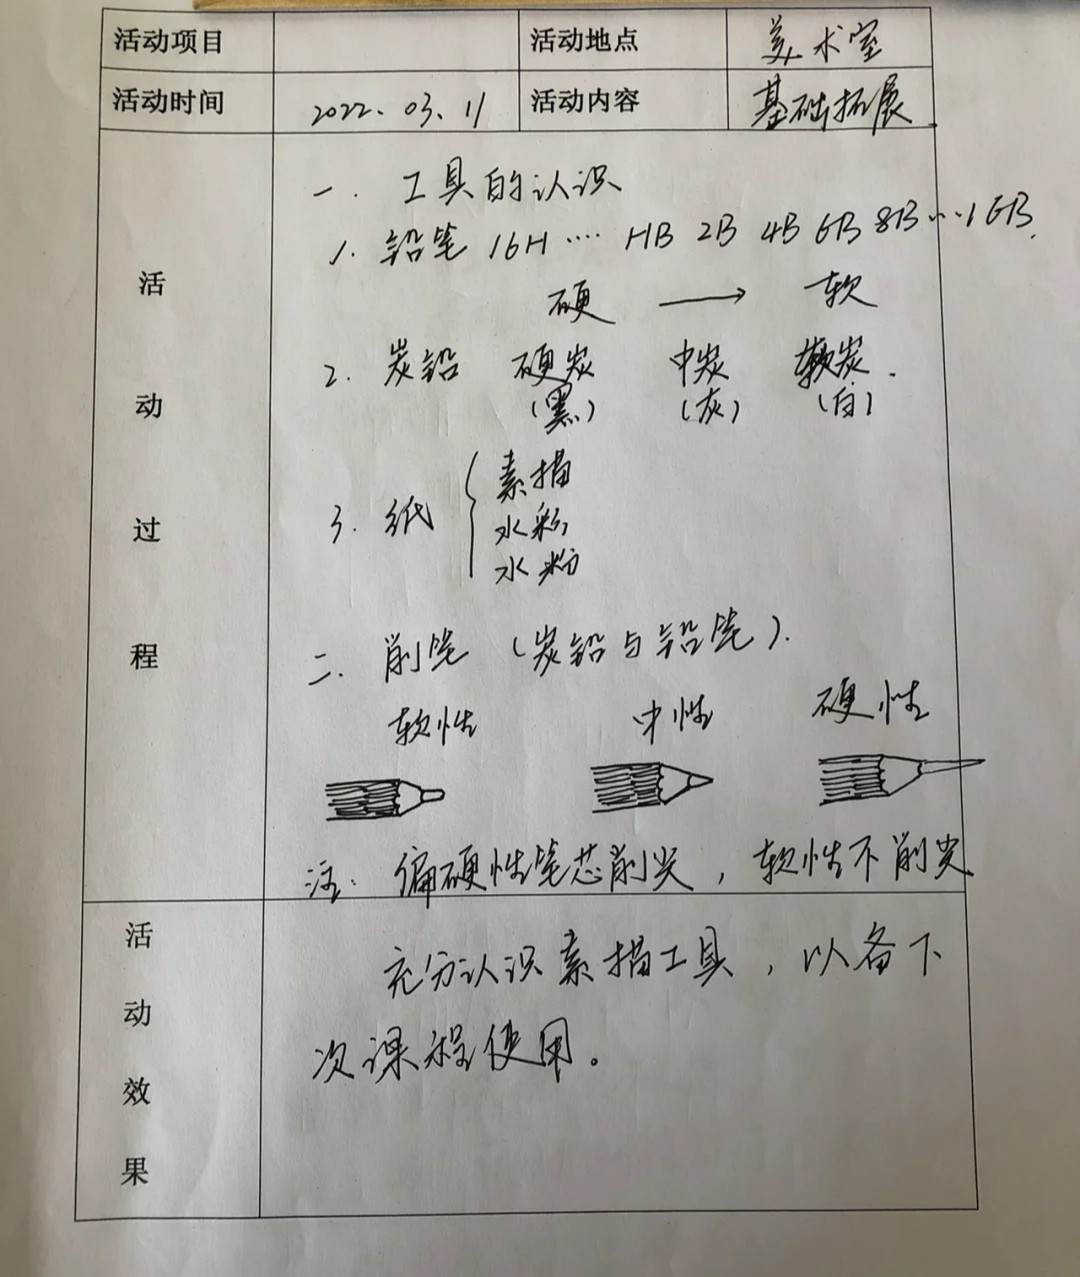 活动项目 活动地点 美术室
活动时间 2022.03.11 活动内容 基础拓展
活动过程
一. 工具的认识
1. 铅笔 16H ···· HB 2B 4B 6B 8B···16B.
硬 → 软
2. 炭铅 硬炭 中炭 软炭.
(黑) (灰) (白)
3. 纸 { 素描
水彩
水粉
二. 削笔 (炭铅与铅笔).
软性 中性 硬性
注: 偏硬性笔芯削尖, 软性不削尖
活动效果
充分认识素描工具, 以备下
次课程使用。